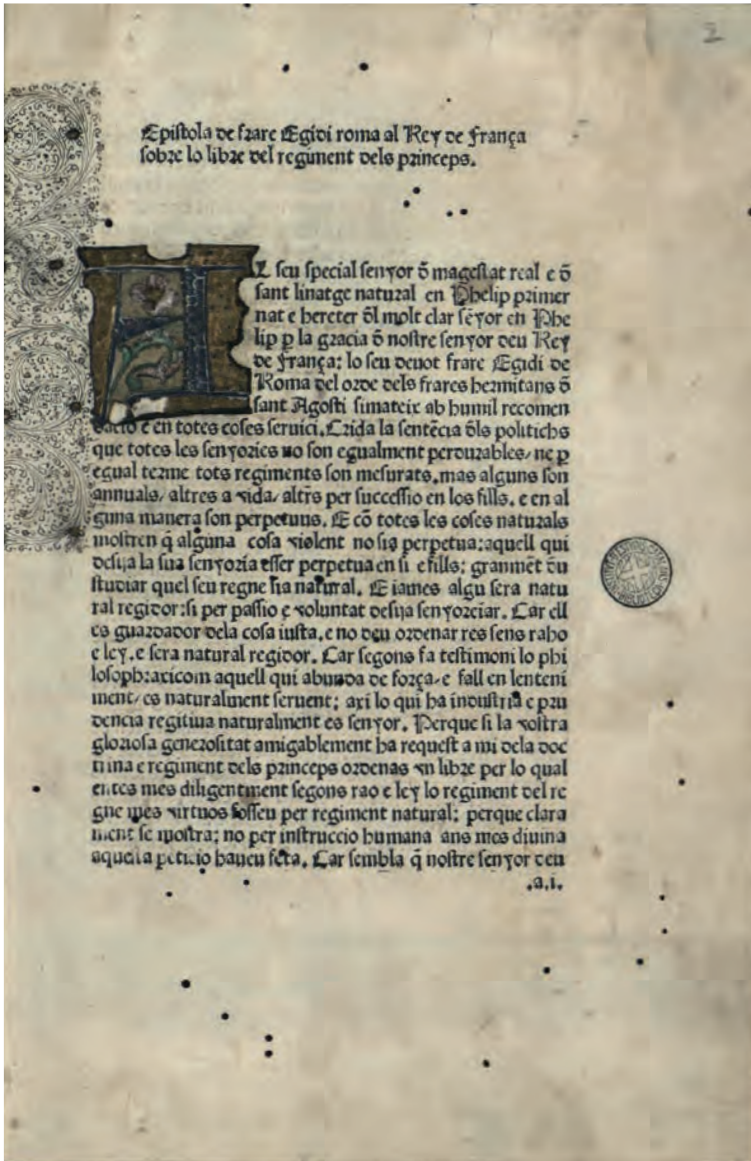 2
Epistola de frare Egidi roma al Rey de frança
sobre lo libre del regiment dels princeps.
AL seu special senyor õ magestat real e õ
sant linatge natural en Phelip primer
nat e hereter õl molt clar sẽyor en Phe
lip ꝑ la gracia õ nostre senyor deu Rey
de frança: lo seu deuot frare Egidi de
Roma del orde dels frares hermitans õ
sant Agosti simateix ab humil recomen
dacio e en totes coses seruici. Crida la sentẽcia õls politichs
que totes les senyories no son egualment perdurables/ ne ꝑ
egual terme tots regiments son mesurats. mas alguns son
annuals/ altres a vida/ altrs per successio en los fills. e en al
guna manera son perpetuus. E cõ totes les coses naturals
mostren q̃ alguna cosa violent no sia perpetua: aquell qui
desija la sua senyoria esser perpetua en si e fills: granmẽt õu
studiar quel seu regne sia natural. E iames algu sera natu
ral regidor: si per passio e voluntat desija senyoreiar. Car ell
es guardador dela cosa iusta. e no deu ordenar res sens raho
e ley. e sera natural regidor. Car segons fa testimoni lo phi
losoph: axicom aquell qui abunda de força/ e fall en lenteni
ment/ es naturalment seruent; axi lo qui ha industria e pru
dencia regitiua naturalment es senyor. Perque si la vostra
gloriosa generositat amigablement ha request a mi dela doc
trina e regiment dels princeps ordenas vn libre per lo qual
entes mes diligentment segons rao e ley lo regiment del re
gne mes virtuos fosseu per regiment natural: perque clara
ment se mostra; no per instruccio humana ans mes diuina
aquella peticio haueu feta. Car sembla q̃ nostre senyor deu
.a.i.